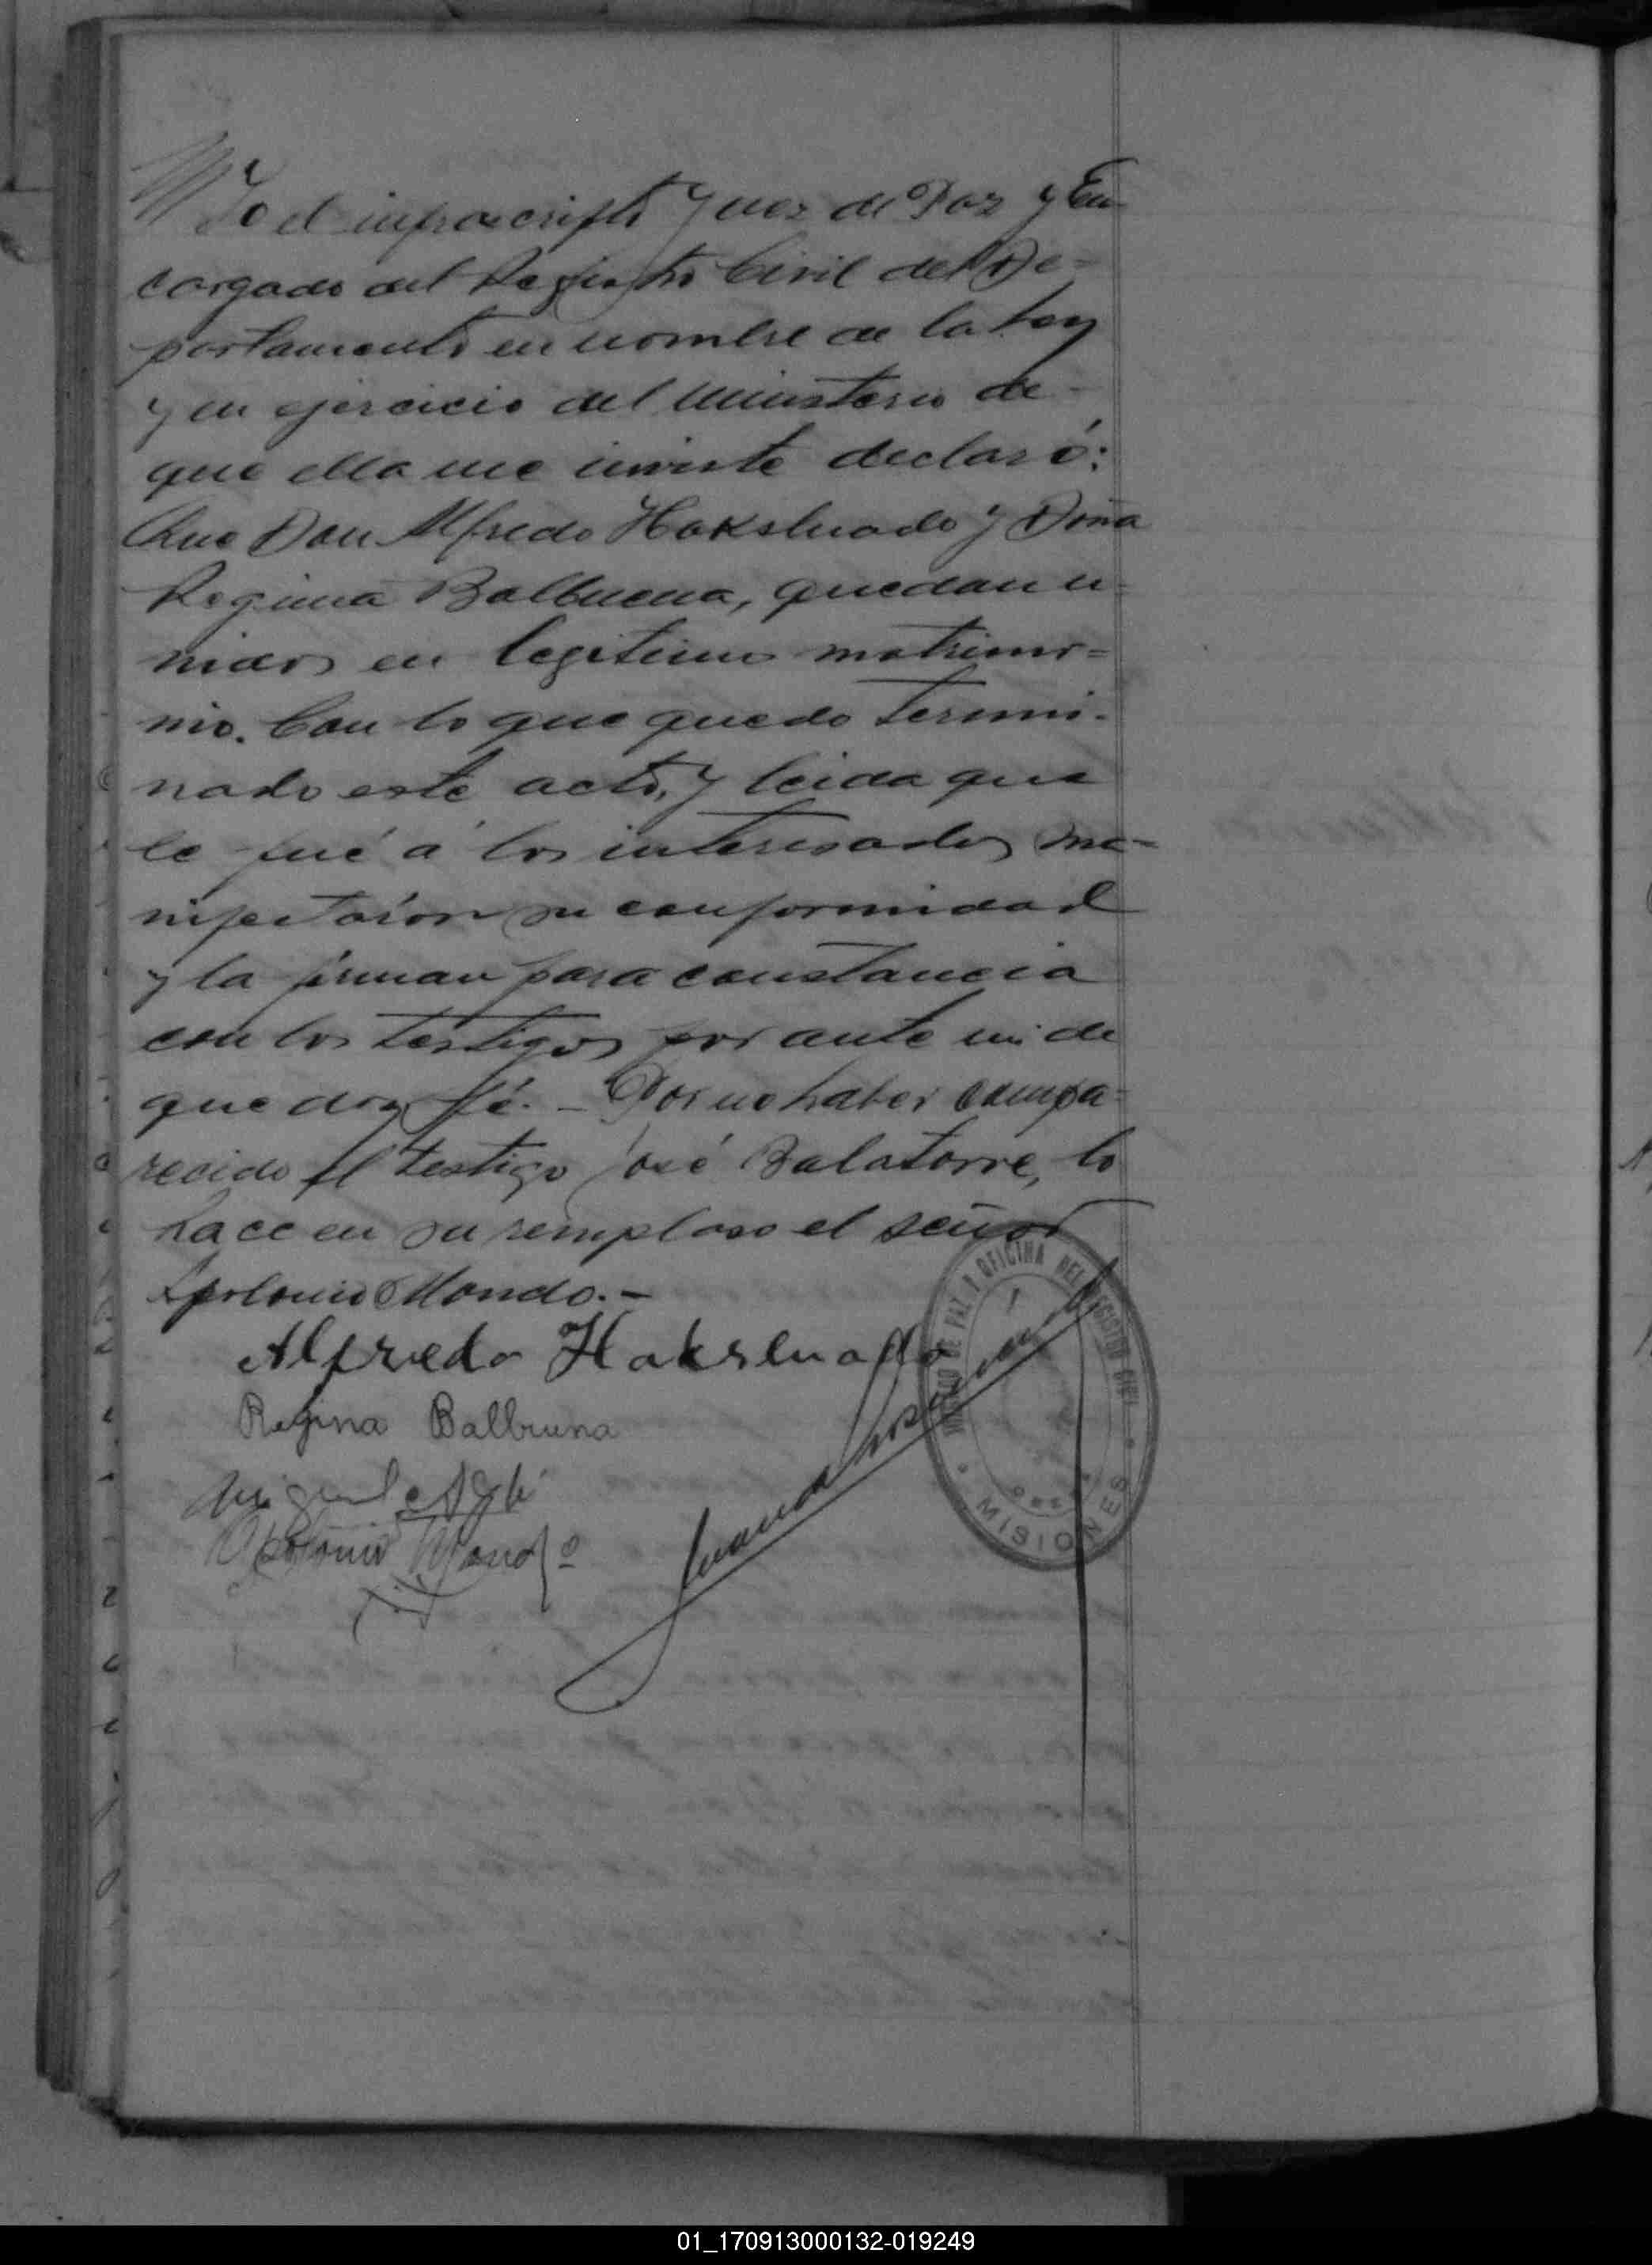 Yo el infrascripto Juez de Paz y En-
cargado del Registro Civil del De=
partamento en nombre de la Ley
y en ejercicio del ministerio de-
que ella me inviste declaró:
Que Don Alfredo Haksluado y Doña
Regina Balbuena, quedan u-
nidos en legitimo matrimo=
nio. Con lo que quedo termi-
nado este acto, y leida que
le fué á los interesados ma=
nifestarón su conformidad
y la firman para constancia
con los testigos por ante mi de
que doy fé. - Por no haber compa=
recido el testigo José Balatorre, lo
hace en su remplaso el señor
Apolonio Mondo.-
Alfredo Haksluado
Regina Balbuna
Miguel
Apolonio Mondo
JUZGADO DE PAZ Y OFICINA DEL REGISTRO CIVIL
MISIONES
01_170913000132-019249